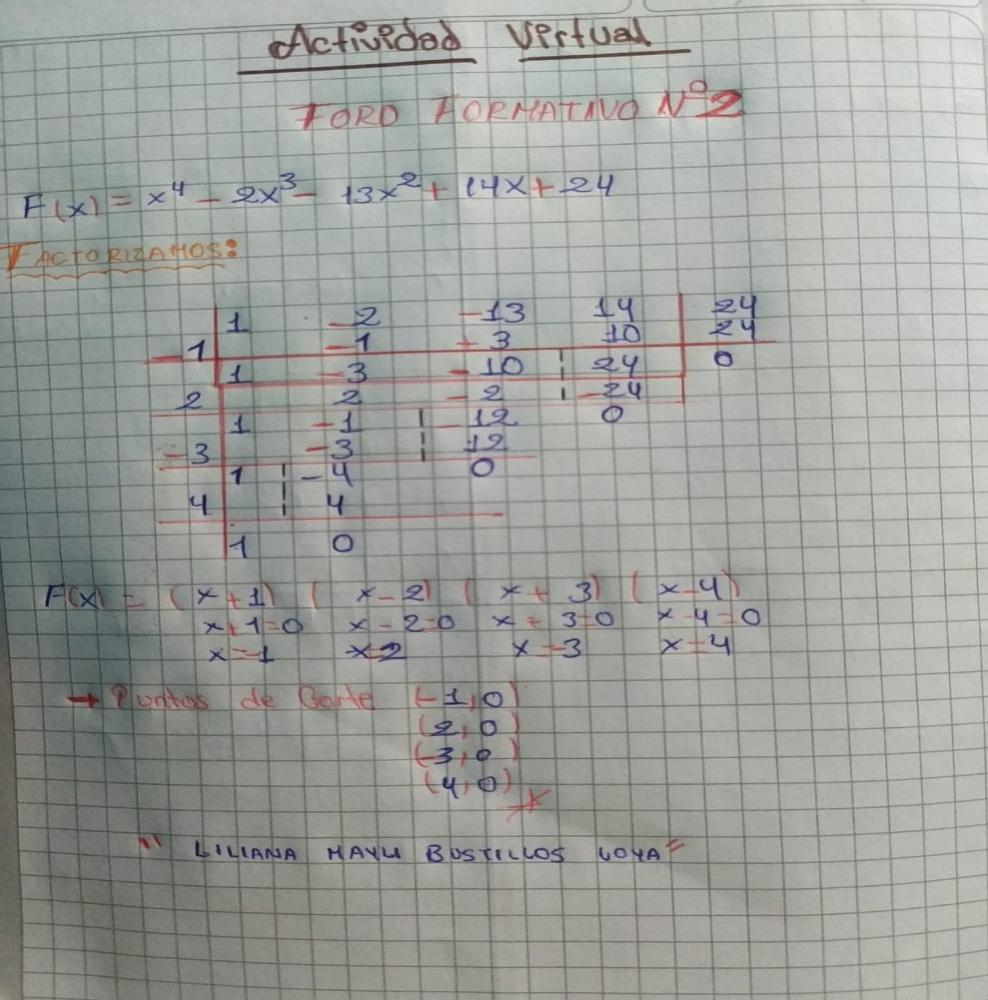 Actividad Virtual
FORO FORMATIVO Nº2
F(x) = x⁴ - 2x³ - 13x² + 14x + 24
FACTORIZAMOS:
1 -2 -13 14 24
-1 -1 +3 10 24
1 -3 -10 24 0
2 2 -2 -24
1 -1 -12 0
-3 -3 12
1 -4 0
4 4
1 0
F(x) = (x+1) (x-2) (x+3) (x-4)
x+1=0 x-2=0 x+3=0 x-4=0
x=-1 x=2 x=-3 x=4
→ Puntos de Corte (-1,0)
(2,0)
(-3,0)
(4,0)
" LILIANA MAYLI BUSTILLOS LOYA "